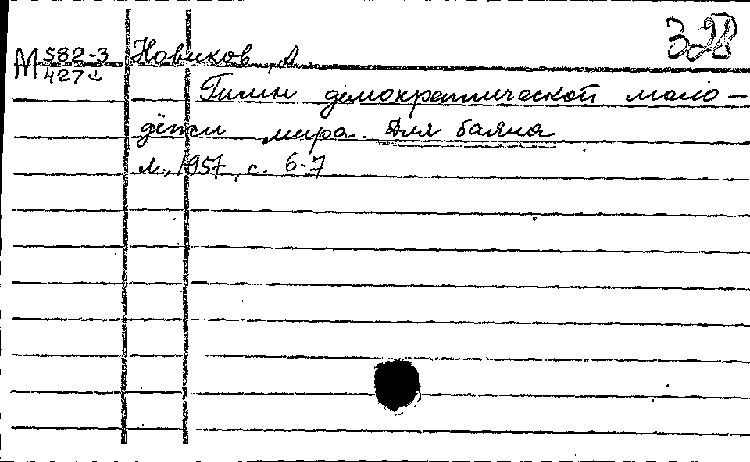 328
М 582-3 Новиков А.
427
Гимн демократической моло-
дёжи мира. Для баяна
М., 1957, с. 6-7